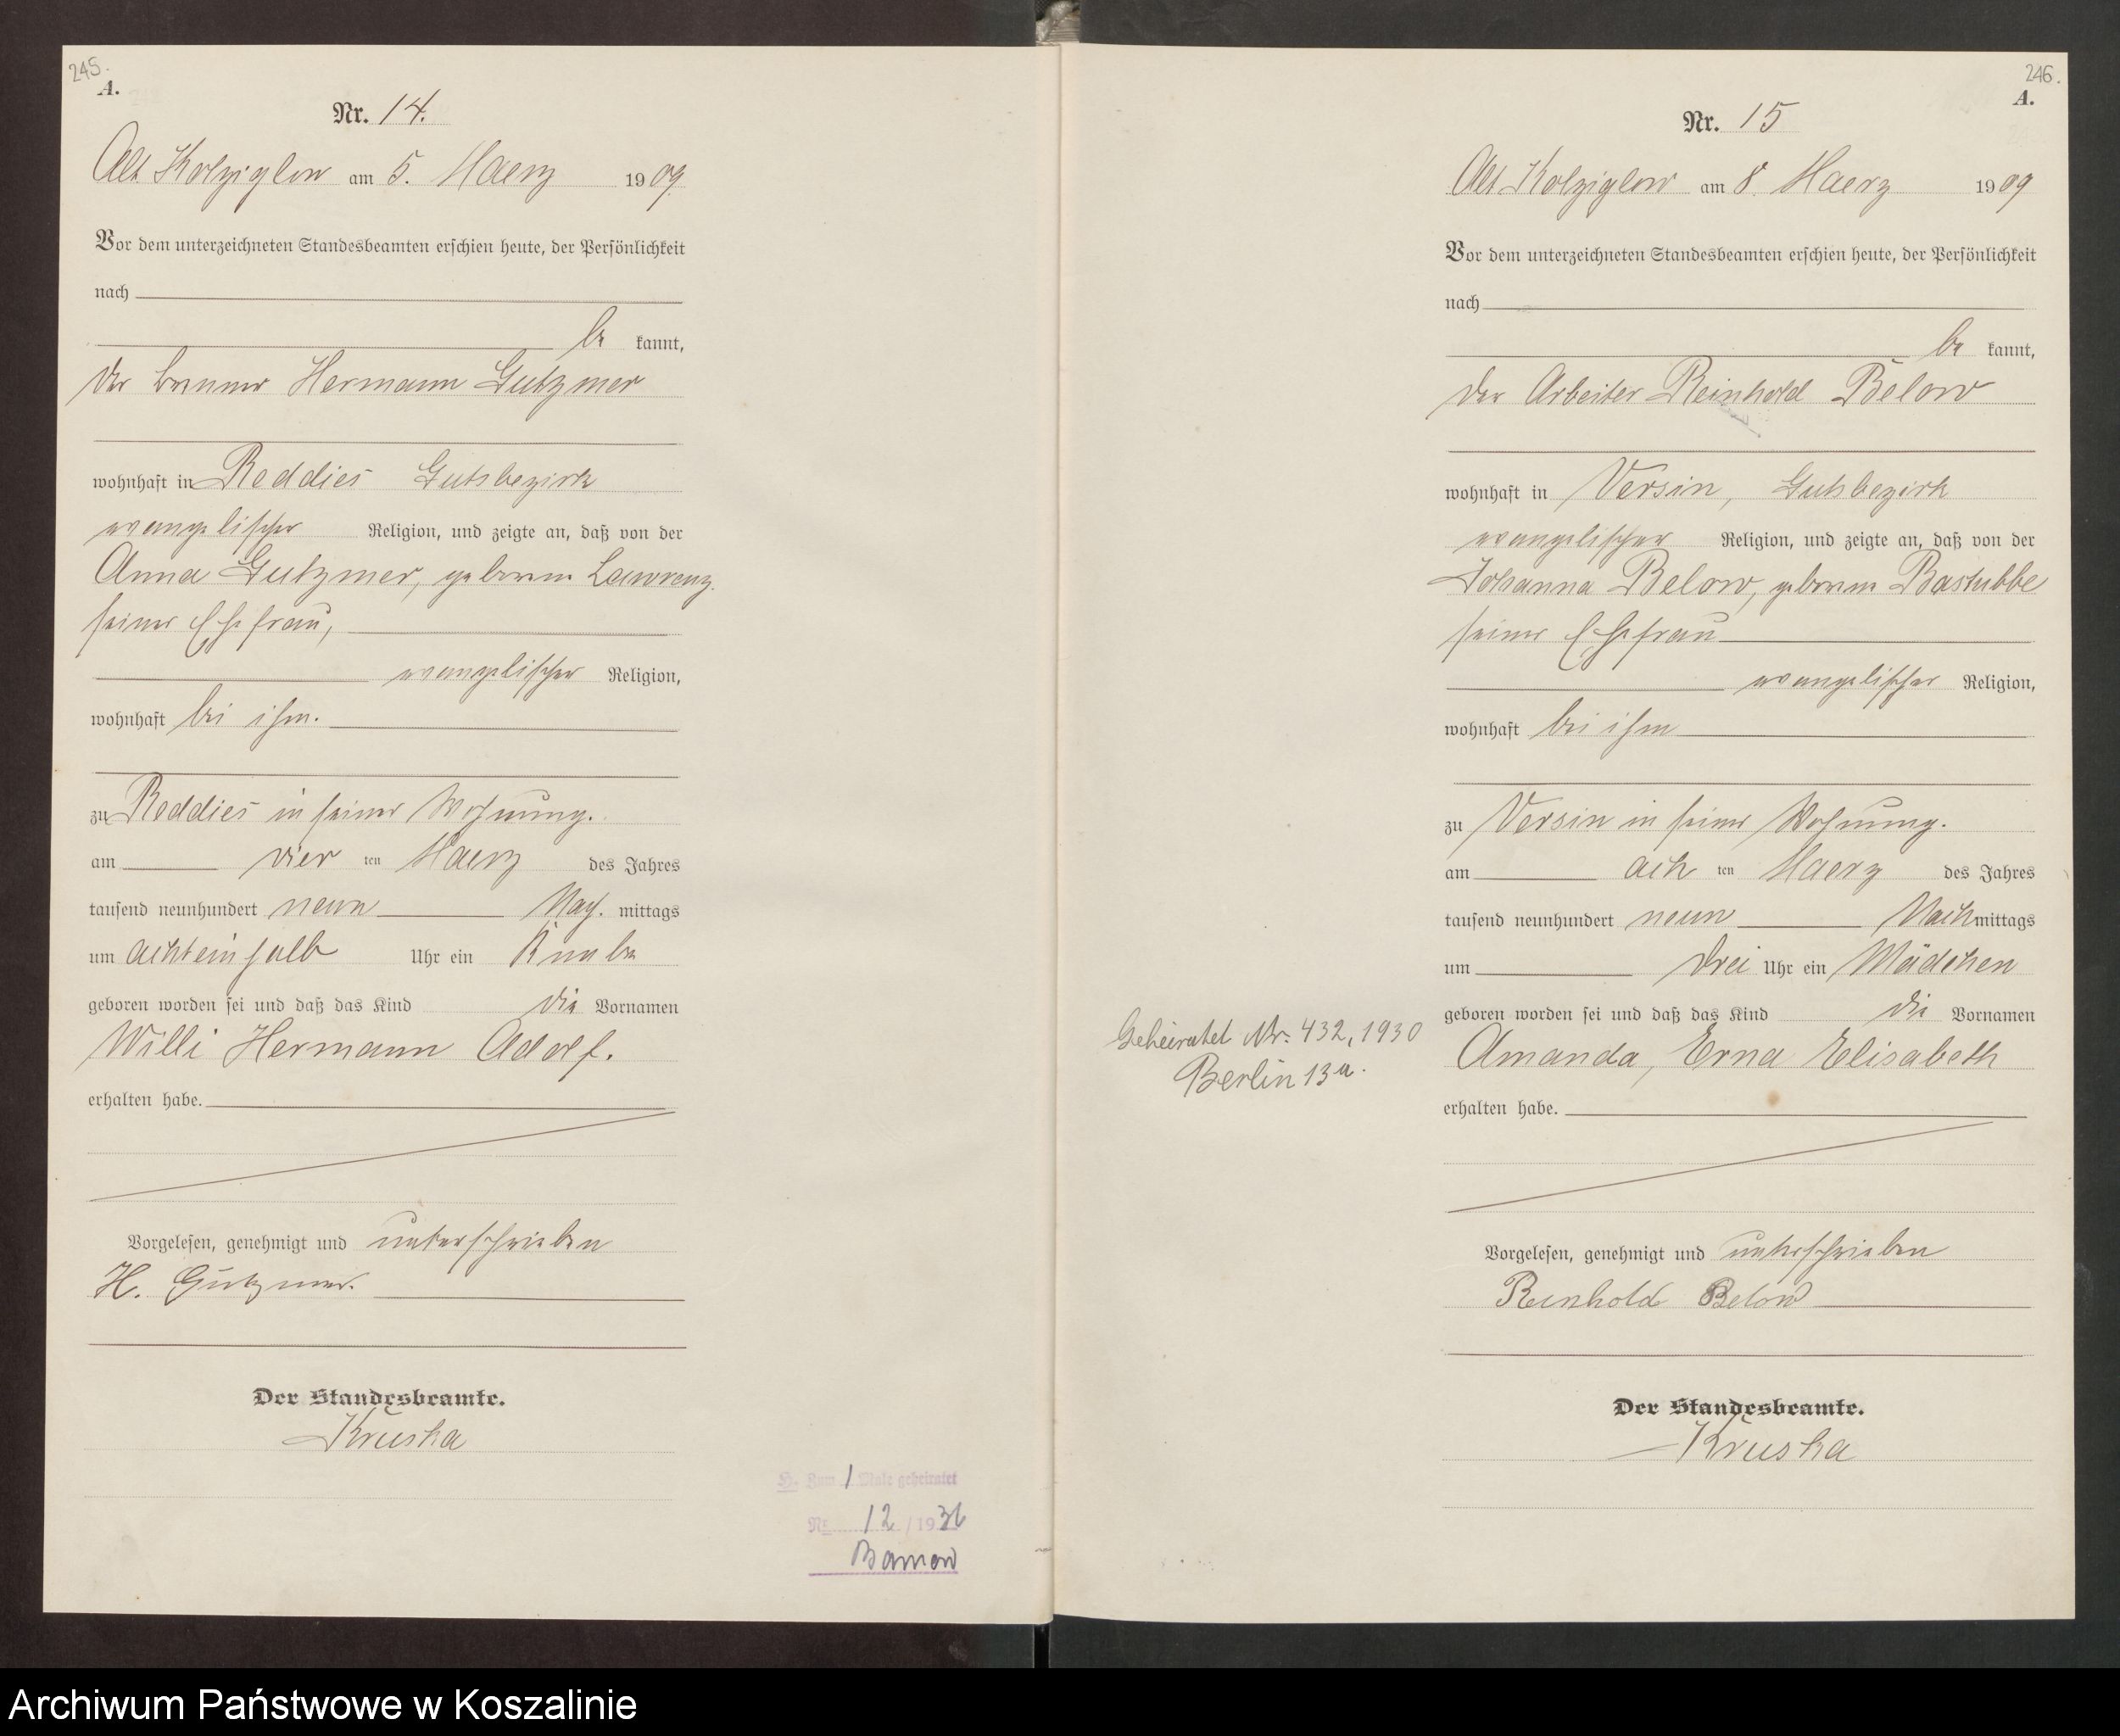 245.
A.
Nr. 14.
Alt Kolziglow am 5. Maerz 1909.
Vor dem unterzeichneten Standesbeamten erschien heute, der Persönlichkeit
nach
be kannt,
der Brenner Hermann Gutzmer
wohnhaft in Reddies Gutsbezirk
evangelischer Religion, und zeigte an, daß von der
Anna Gutzmer, geborene Lawrenz.
seiner Ehefrau,
evangelischer Religion,
wohnhaft bei ihm.
zu Reddies in seiner Wohnung.
am vier ten Maerz des Jahres
tausend neunhundert neun Nach. mittags
um achteinhalb Uhr ein Knabe
geboren worden sei und daß das Kind die Vornamen
Willi Hermann Adolf.
erhalten habe.
Vorgelesen, genehmigt und unterschrieben
H. Gutzmer.
Der Standesbeamte.
Kruska
H. Zum 1 Male geheiratet
Nr. 12 / 1936
246.
A.
Nr. 15
Alt Kolziglow am 8. Maerz 1909
Vor dem unterzeichneten Standesbeamten erschien heute, der Persönlichkeit
nach
be kannt,
der Arbeiter Reinhold Below
wohnhaft in Versin, Gutsbezirk
evangelischer Religion, und zeigte an, daß von der
Johanna Below, geborene Bastubbe
seiner Ehefrau
evangelischer Religion,
wohnhaft bei ihm
zu Versin in seiner Wohnung.
am ach ten Maerz des Jahres
tausend neunhundert neun Nachmittags
um drei Uhr ein Mädchen
geboren worden sei und daß das Kind die Vornamen
Geheiratet Nr. 432, 1930
Berlin 13a.
Amanda, Erna Elisabeth
erhalten habe.
Vorgelesen, genehmigt und unterschrieben
Reinhold Below
Der Standesbeamte.
Kruska
Archiwum Państwowe w Koszalinie